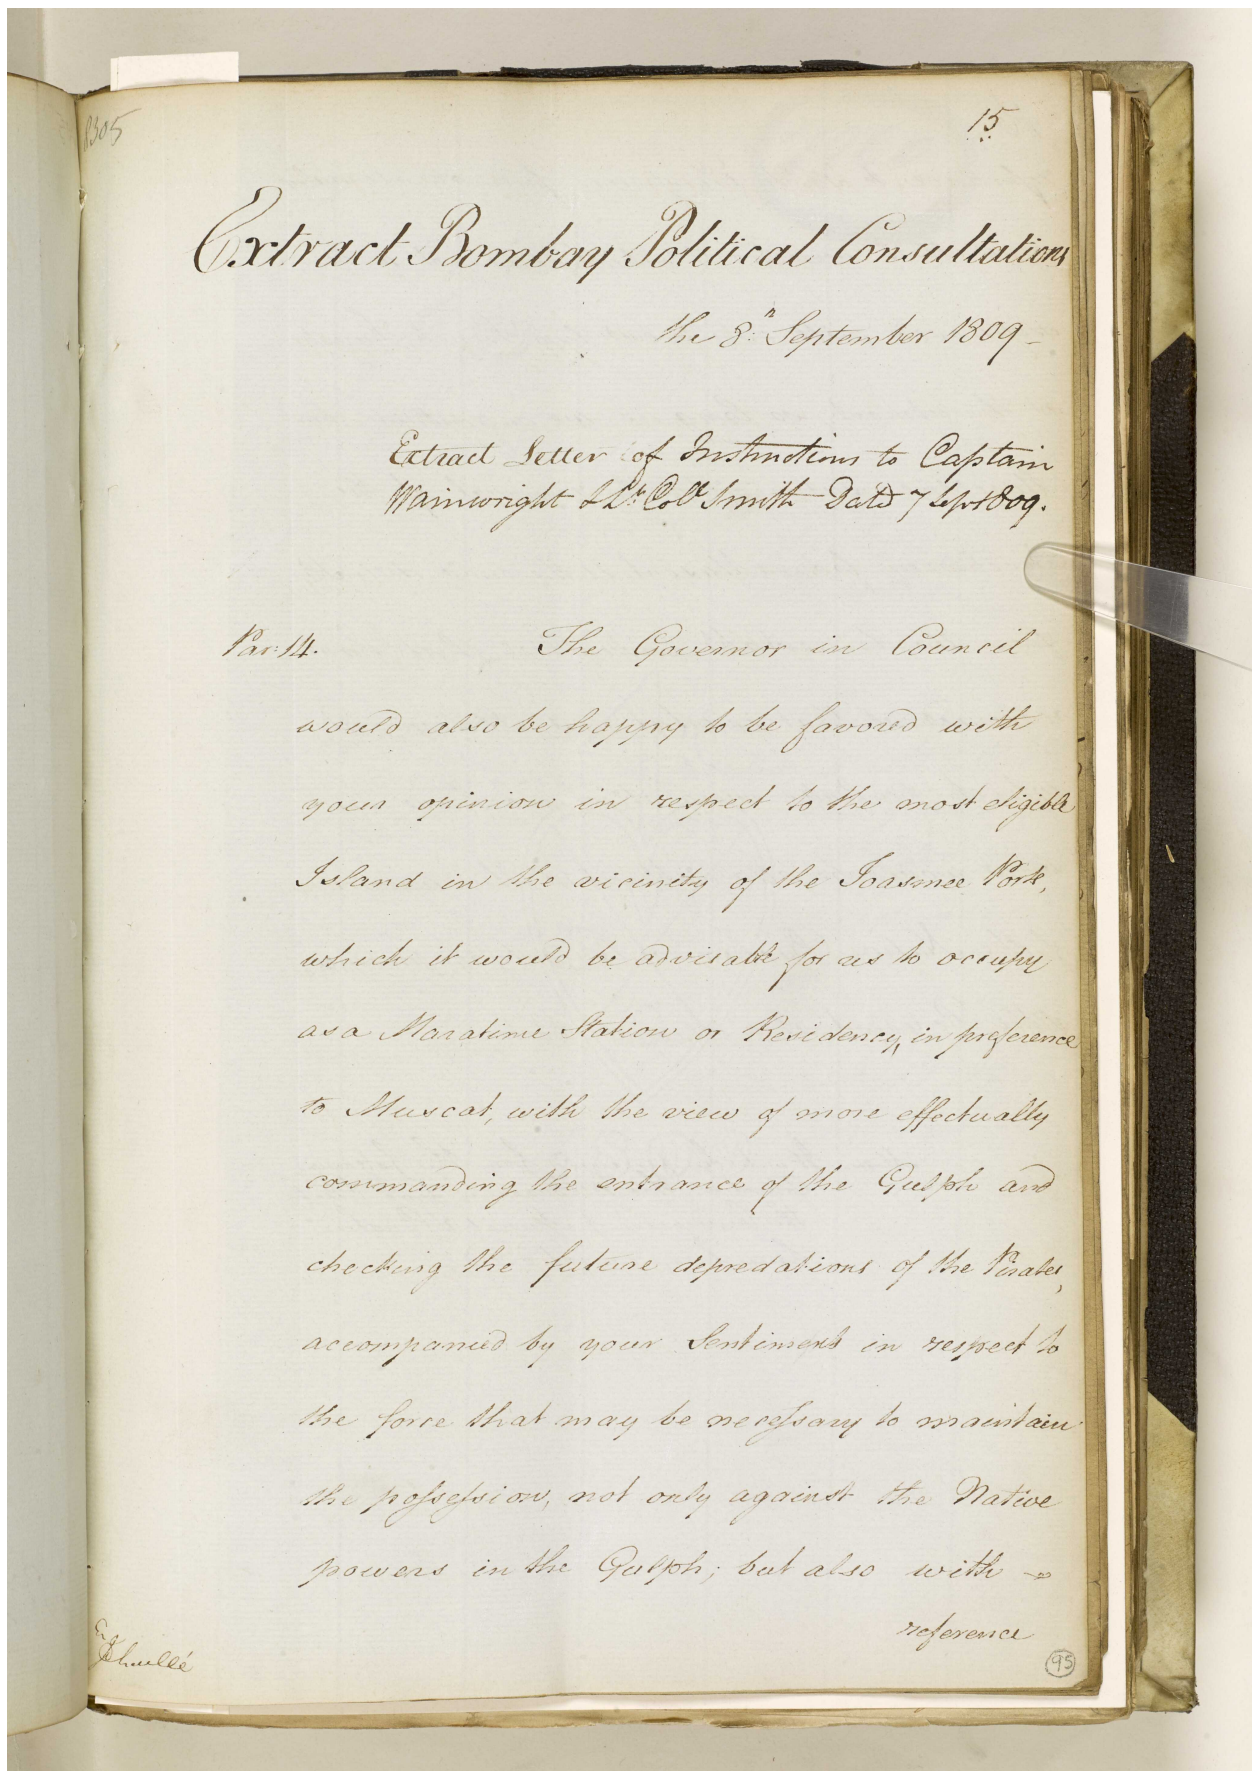 15
Extract Bombay Political Consultations
the 8th September 1809
Extract Letter of Instructions to Captain
Wainwright & Lt Coll Smith Dated 7 Sep 1809.
Par: 14. The Governor in Council
would also be happy to be favored with
your opinion in respect to the most eligible
Island in the vicinity of the Joasmee Ports,
which it would be advisable for us to occupy
as a Maratime Station or Residency, in preference
to Muscat, with the view of more effectually
commanding the entrance of the Gulph and
checking the future depredations of the Pirates,
accompanied by your Sentiments in respect to
the force that may be necessary to maintain
the possession, not only against the Native
powers in the Gulph; but also with
reference
95